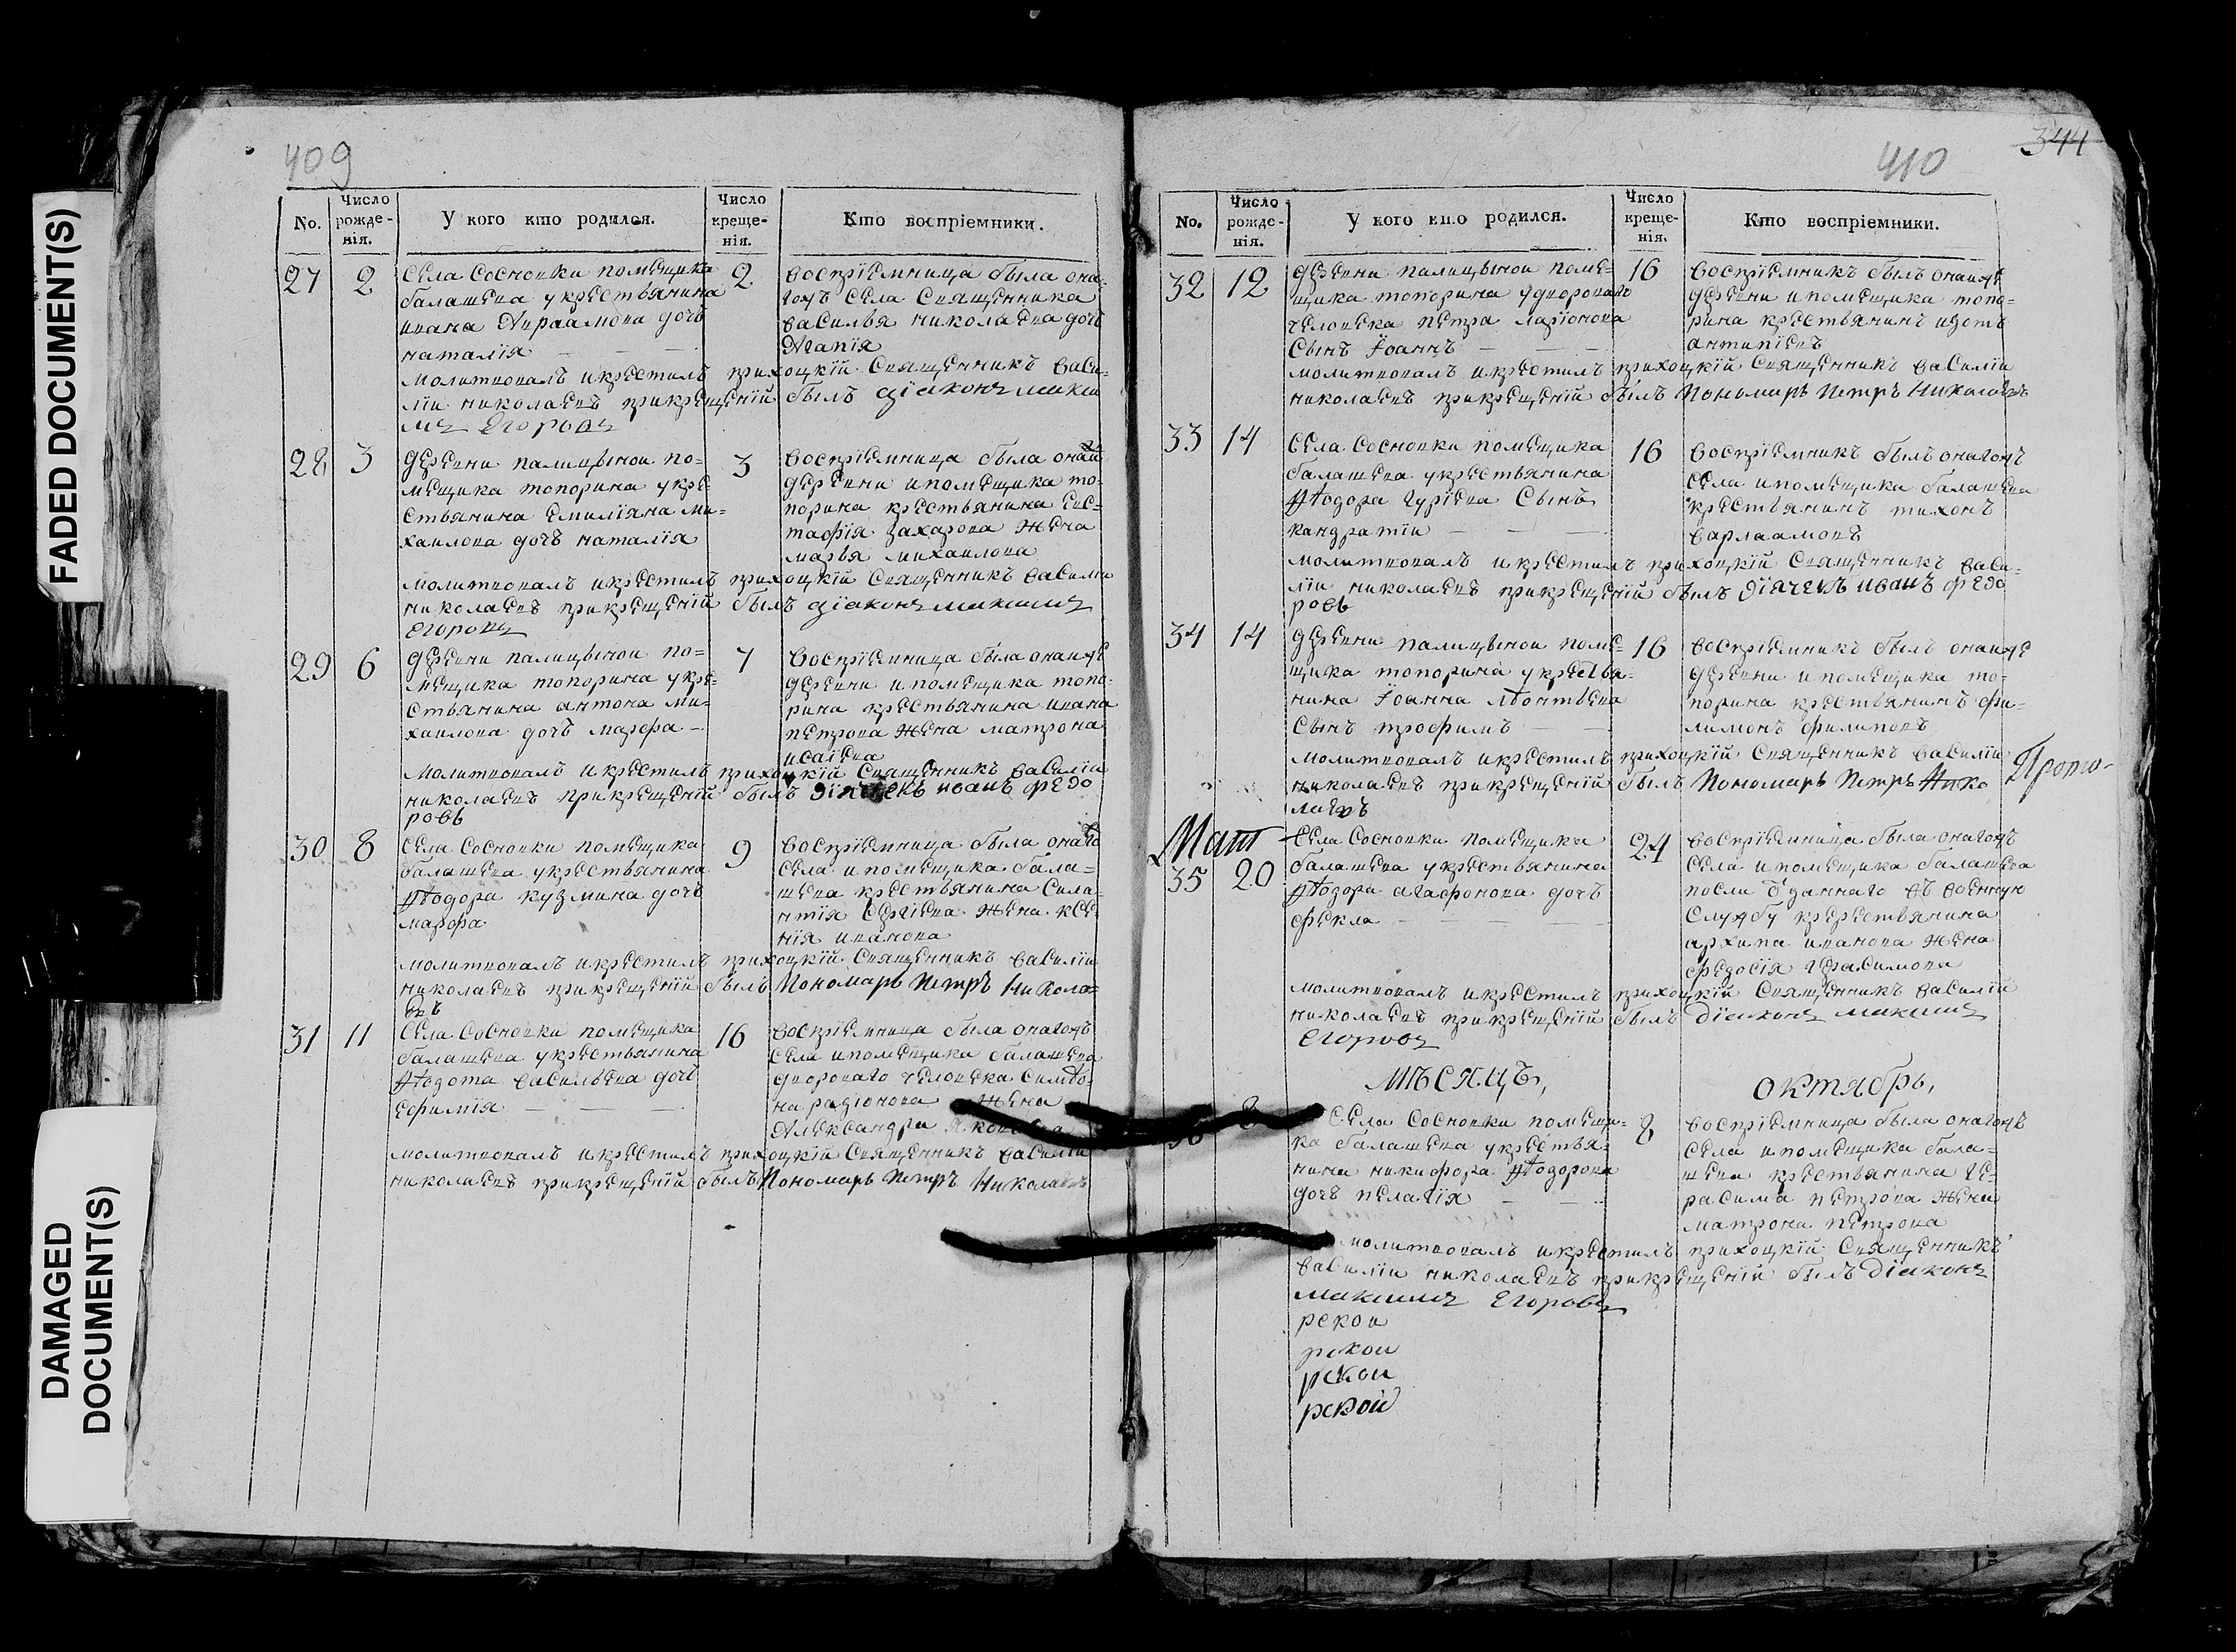 FADED DOCUMENT(S)
DAMAGED
DOCUMENT(S)
409
No.
Число
рожде-
нія.
У кого кто родился.
Число
креще-
нія.
Кто воспріемники.
27
2
села Сосновки помещика
балашева у крестьянина
ивана Авраамова дочь
наталія
2
воспріемница была она-
гожъ села Священника
василья николаева дочь
Агапія
молитвовалъ и крестилъ прихоцкій Священникъ васи-
ліи николаевъ прикрещеній былъ діаконъ макси
мъ Егоровъ
28
3
деревни палицыной по-
мещика топорина у кре-
стьянина емиліяна ми-
хаилова дочь наталія
3
воспріемница была онай
деревни и помещика то-
порина крестьянина евс-
тафія захарова жена
марья михаилова
молитвовалъ и крестилъ прихоцкій Священникъ василіи
николаевъ прикрещеній былъ діаконъ максимъ
Егоровъ
29
6
деревни палицыной по-
мещика топорина у кре-
стьянина антона ми-
хаилова дочь марфа
7
воспріемница была онаиже
деревни и помещика топо-
рина крестьянина ивана
петрова жена матрона
исаіева
молитвовалъ и крестилъ прихоцкій Священникъ василіи
николаевъ прикрещеній былъ діячекъ иванъ федо
ровь
30
8
села Сосновки помещика
балашева у крестьянина
Ѳодора кузмина дочь
марфа
9
воспріемница была онаго
села и помещика бала-
шева крестьянина сила-
нтія Сергіева жена ксе-
нія иванова
молитвовалъ и крестилъ прихоцкій Священникъ василіи
николаевъ прикрещеній былъ Пономарь Петръ Никола-
евъ
31
11
села Сосновки помещика
балашева у крестьянина
Ѳодота васильева дочь
ефимія
16
воспріемница была онагожъ
села и помещика балашева
двороваго человека симео-
на радіонова жена
Александра
молитвовалъ и крестилъ прихоцкій Священникъ василіи
николаевъ прикрещеній былъ Пономарь Петръ Николаевъ
410
344
No.
Число
рожде-
нія.
У кого кто родился.
Число
креще-
нія.
Кто воспріемники.
32
12
деревни палицыной поме-
щика топорина у двороваго
человека петра ларіонова
сынъ Іоаннъ
16
воспріемникъ былъ онаиже
деревни и помещика топо-
рина крестьянинъ изотъ
антипіевъ
молитвовалъ и крестилъ прихоцкій Священникъ василіи
николаевъ прикрещеній былъ Пономарь Петръ Николаевъ
33
14
села Сосновки помещика
балашева у крестьянина
Ѳодора гуріева сынъ
кандратіи
16
воспріемникъ былъ онагожъ
села и помещика балашева
крестьянинъ тихонъ
варлаамовъ
молитвовалъ и крестилъ прихоцкій Священникъ васи-
ліи николаевъ прикрещеній былъ діячекъ иванъ федо
ровь
34
14
деревни палицыной поме-
щика топорина у крестья-
нина Іоанна леонтьева
сынъ трофимъ
16
воспріемникъ былъ онаиже
деревни и помещика то-
порина крестьянинъ фи-
лимонъ филиповъ
молитвовалъ и крестилъ прихоцкій Священникъ василіи
николаевъ прикрещеній былъ Пономарь Петръ Нико
лаевъ
35
20
села Сосновки помещика
балашева у крестьянина
Ѳодора агафонова дочь
фекла
24
воспріемница была онагожъ
села и помещика балашева
посли отданнаго въ военную
службу кререстьянина
архипа иванова жена
федосія герасимова
молитвовалъ и крестилъ прихоцкій Священникъ василіи
николаевъ прикрещеній былъ діаконъ максимъ
Егоровъ
мѣсяцъ,
октябрь,
села Сосновки помещи-
ка балашева у крестья-
нина никифора Ѳодорова
дочь пелагія
8
воспріемница была онагожъ
села и помещика бала-
шева крестьянина ге-
расима петрова жена
матрона петрова
молитвовалъ и крестилъ прихоцкій Священникъ
василіи николаевъ прикрещеній былъ діаконъ
максимъ Егоровъ
рской
рской
рской
рской